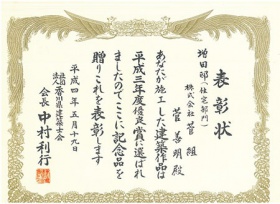 表彰状
増田邸(住宅部門)
株式会社 菅組
菅 善明 殿
あなたが施工した建築作品は
平成三年度優良賞に選ばれ
ましたのでここに記念品を
贈りこれを表彰します
平成四年五月十九日
社団法人 香川県建築士会
会長 中村利行